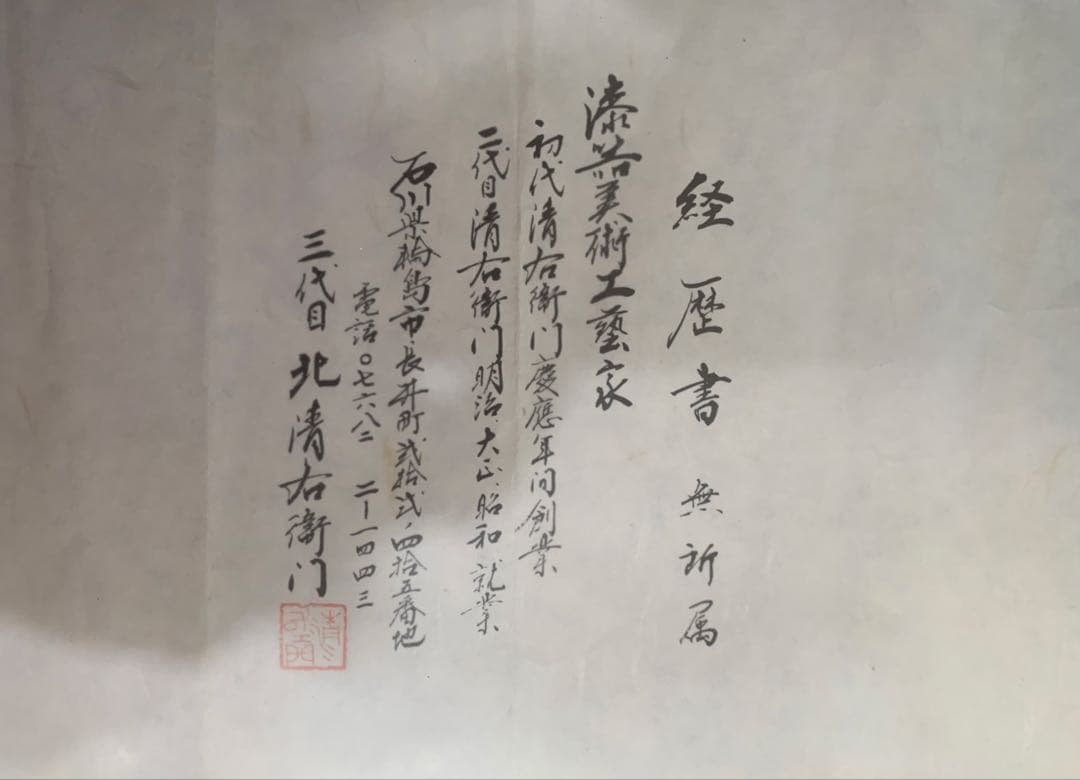 経歴書 無所属
漆器美術工藝家
初代清右衛门慶應年间創業
二代目清右衛门明治、大正、昭和就業
石川県輪島市長井町弐拾弐、四拾五番地
電話〇七六八二 二-一四四三
三代目 北清右衛门
清